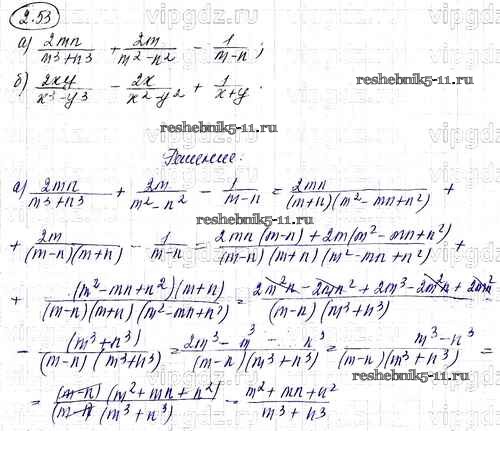 2.53
а) 2mn/(m³+n³) + 2m/(m²-n²) - 1/(m-n);
б) 2xy/(x³-y³) - 2x/(x²-y²) + 1/(x+y).
reshebnik5-11.ru
reshebnik5-11.ru
Решение:
а) 2mn/(m³+n³) + 2m/(m²-n²) - 1/(m-n) = 2mn/((m+n)(m²-mn+n²)) +
reshebnik5-11.ru
+ 2m/((m-n)(m+n)) - 1/(m-n) = (2mn(m-n)+2m(m²-mn+n²))/((m-n)(m+n)(m²-mn+n²)) +
+ (m²-mn+n²)(m+n)/((m-n)(m+n)(m²-mn+n²)) = (2m²n-2mn²+2m³-2m²n+2mn²)/((m-n)(m³+n³))
- (m³+n³)/((m-n)(m³+n³)) = (2m³-m³-n³)/((m-n)(m³+n³)) = (m³-n³)/((m-n)(m³+n³)) =
reshebnik5-11.ru
= (m-n)(m²+mn+n²)/((m-n)(m³+n³)) = (m²+mn+n²)/(m³+n³)
vipgdz.ru